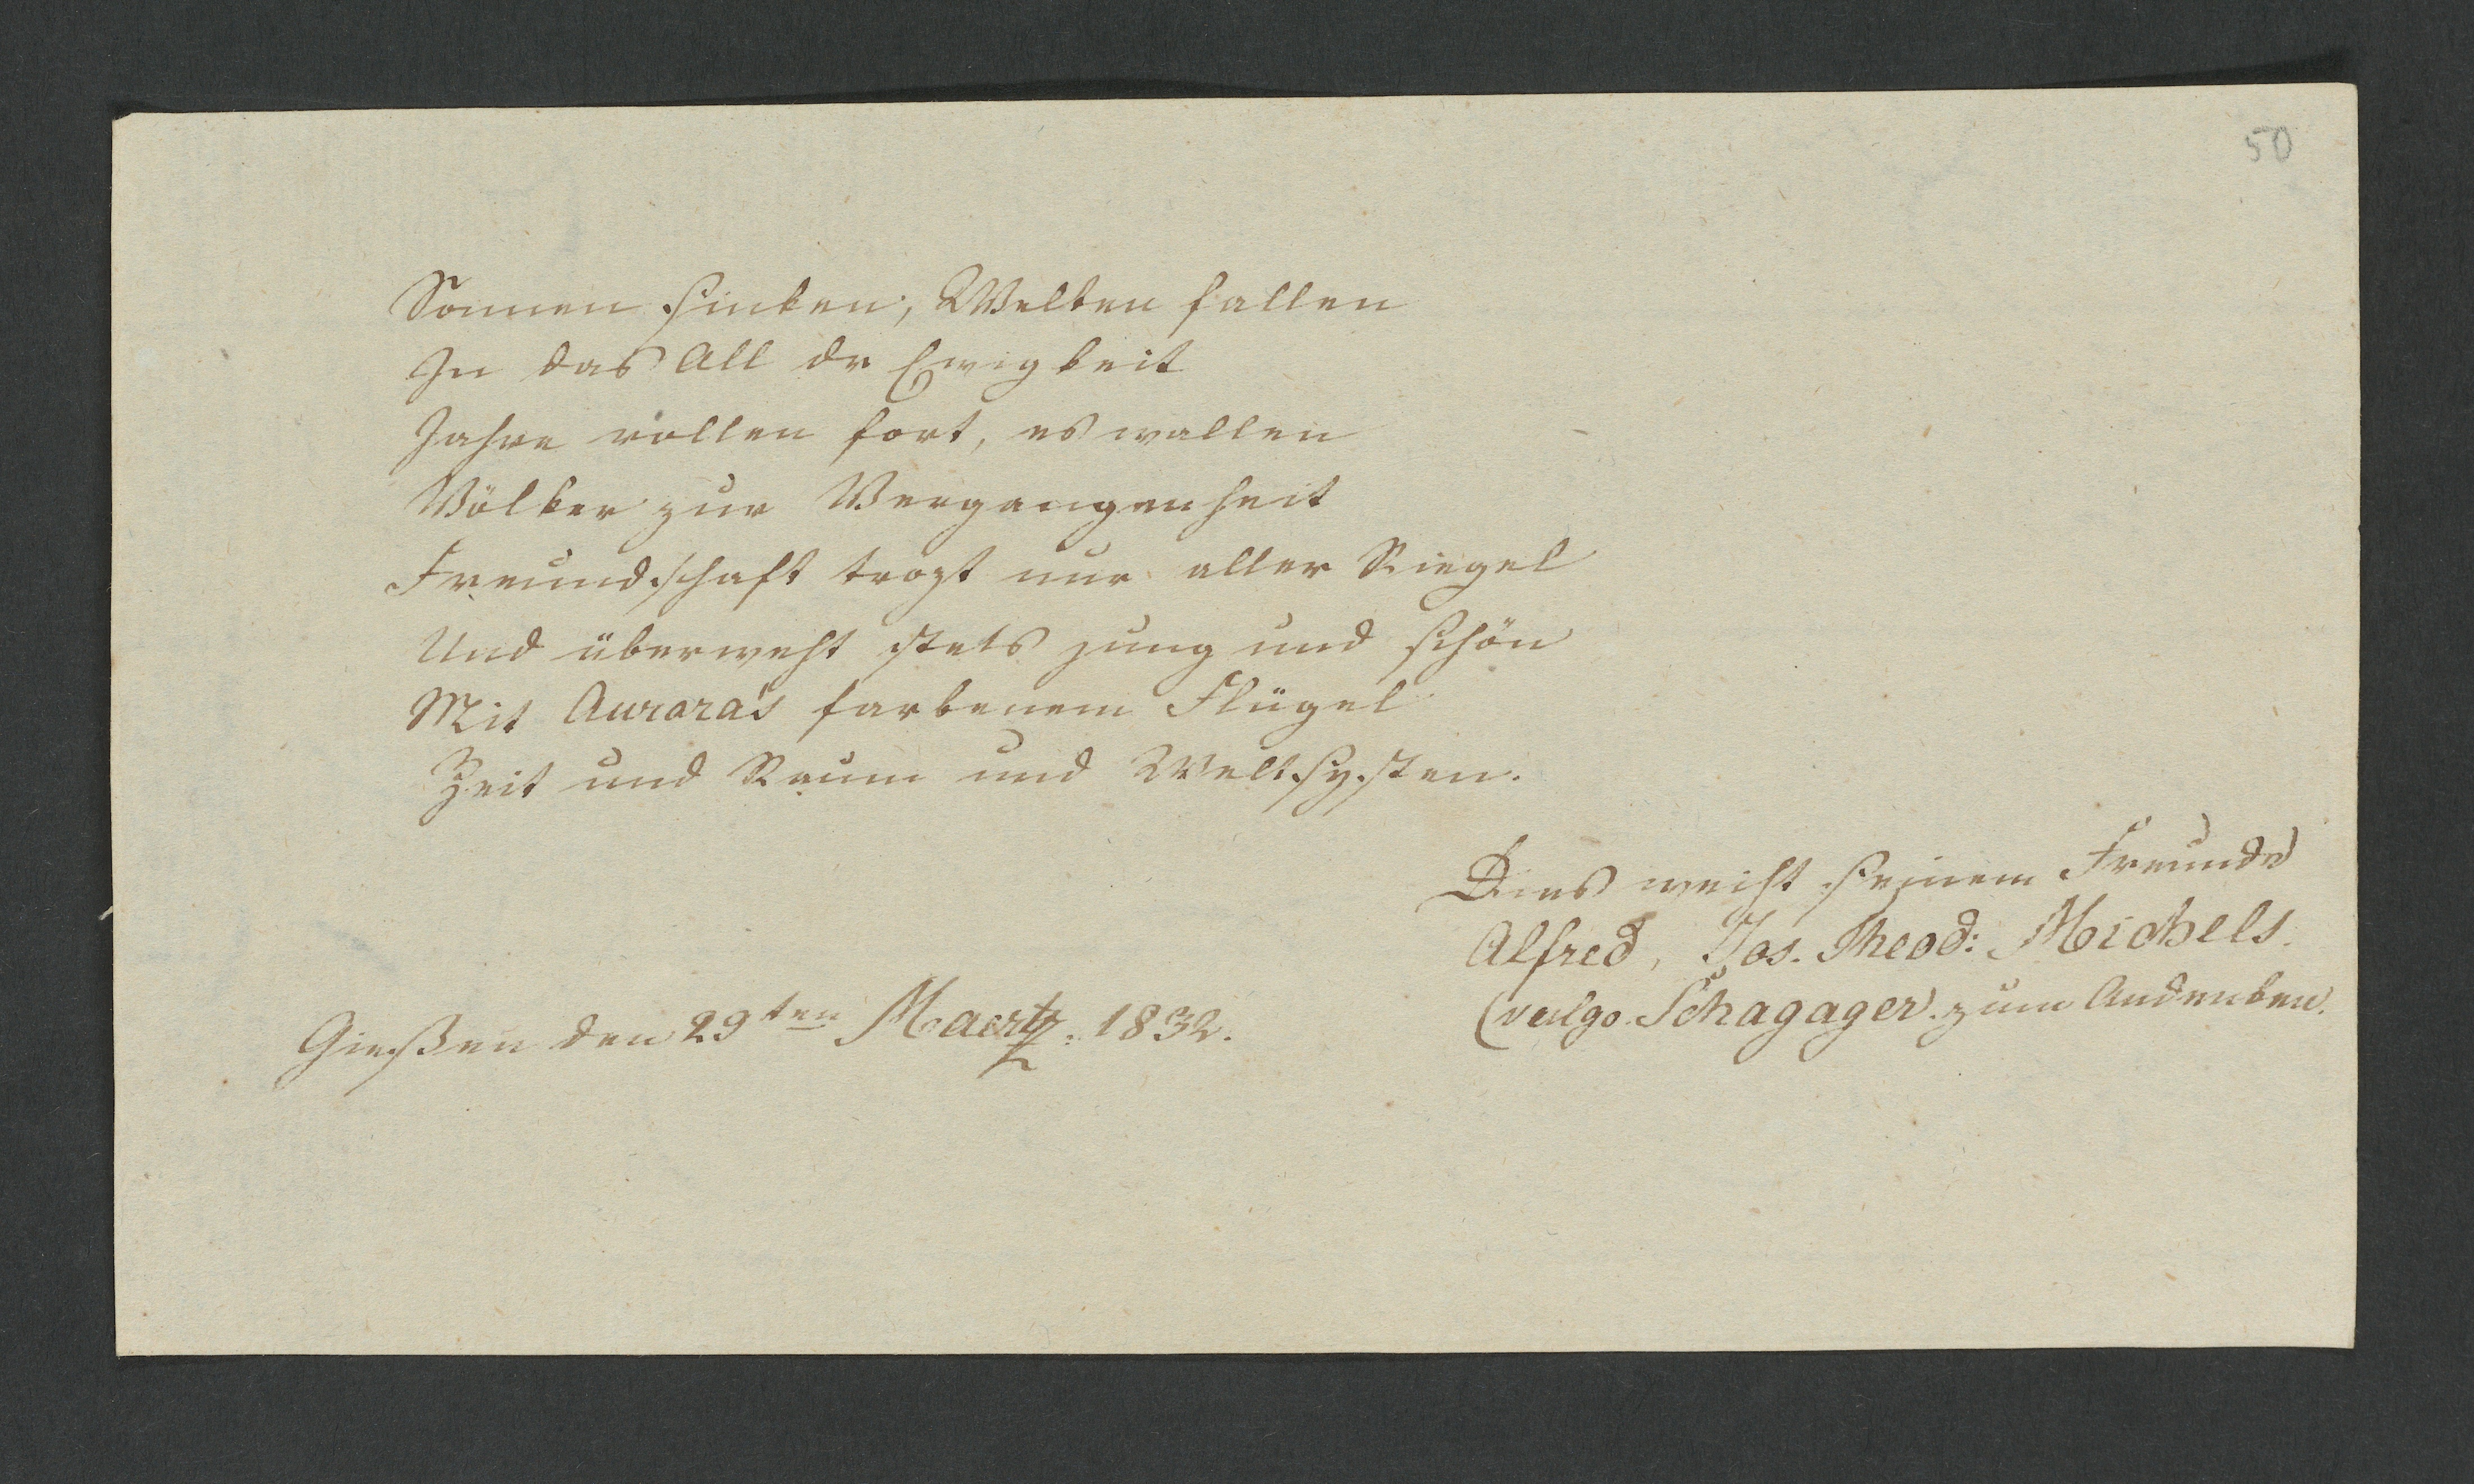 50
Sonnen sinken, Welten fallen
In das All dr Ewigkeit
Jahre rollen fort, es wallen
Völker zur Vergangenheit
Freundschaft trozt nur aller Riegel
Und überweht stets jung und schön
Mit Aurora's farbenem Flügel
Zeit und Raum und Weltsysten.
Dies weiht seinem Freunde
Alfred, Jos. Theod: Michels.
(vulgo. Schagager). zum Andenken.
Gießen den 29ten Maertz. 1832.